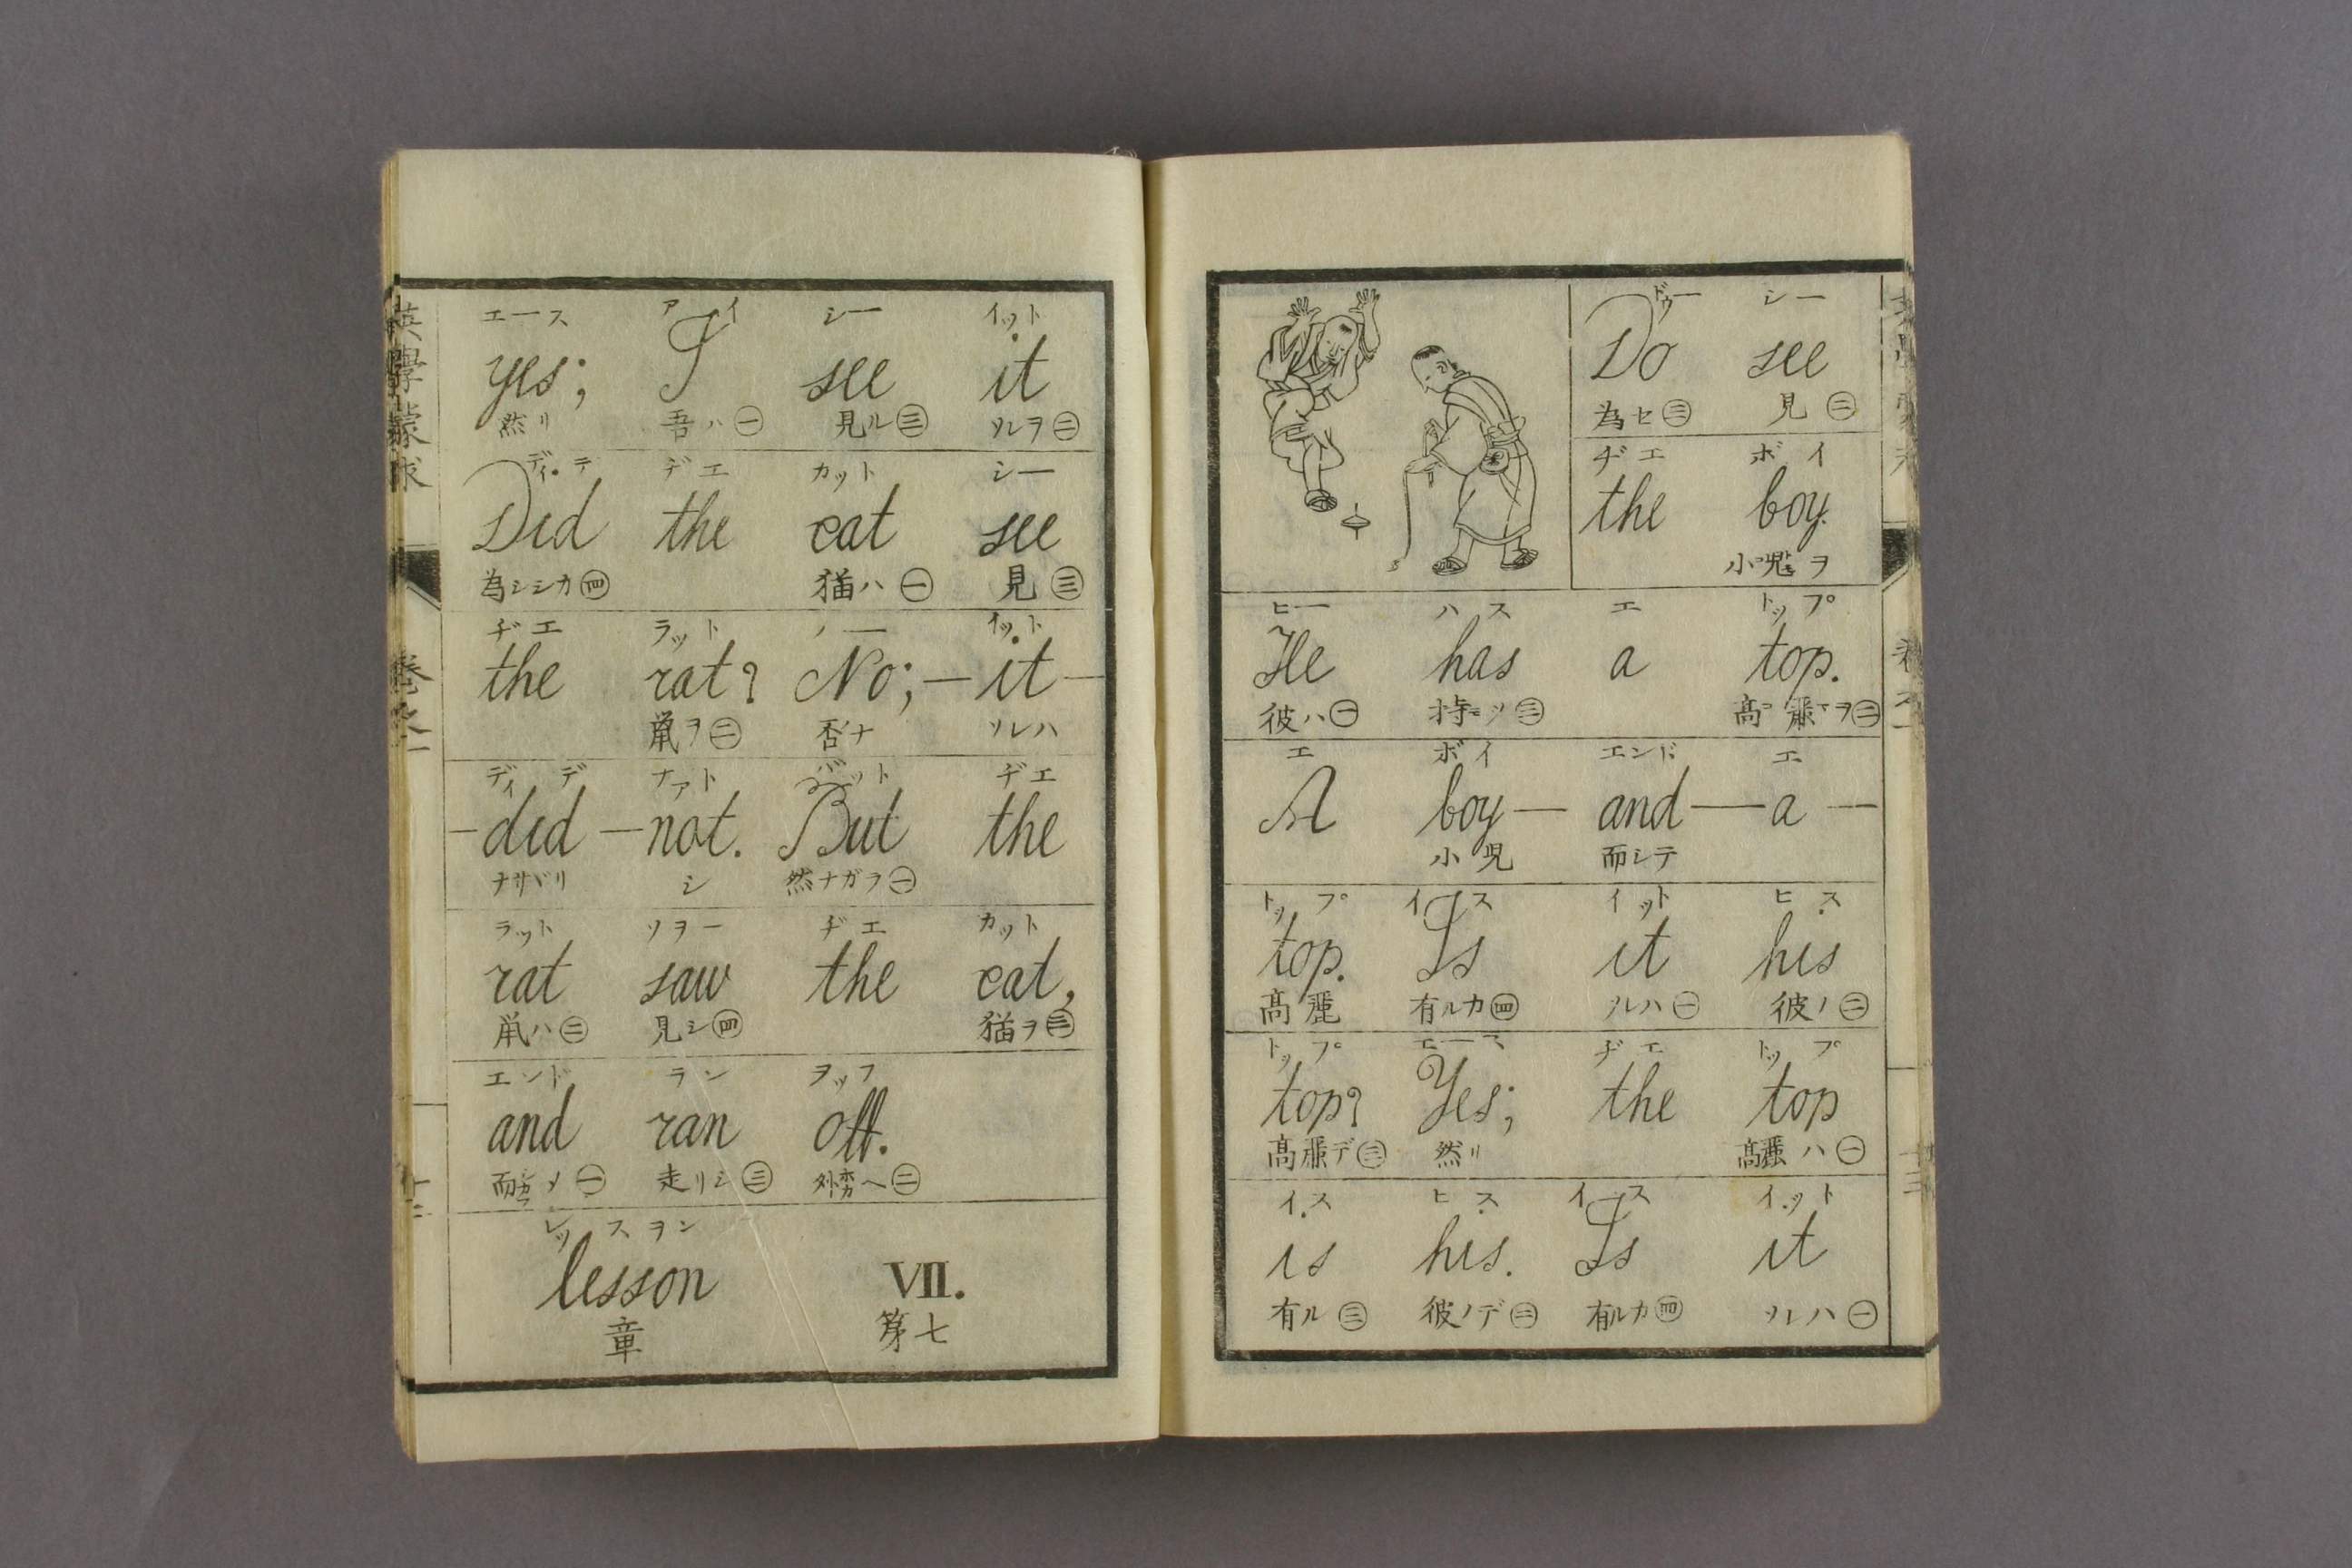 エース アイ シー イット
yes; I see it
然リ 吾ハ㊀ 見ル㊂ ソレヲ㊁
ディデ ヂエ カット シー
Did the cat see
為シシカ㊃ 猫ハ㊀ 見㊂
ヂエ ラット ノー イット
the rat? No;—it—
鼠ヲ㊁ 否ナ ソレハ
ディデ ナアト バット ヂエ
—did—not. But the
ナサヾリ シ 然ナガラ㊀
ラット ソヲー ヂエ カット
rat saw the cat,
鼠ハ㊁ 見シ㊃ 猫ヲ㊂
エンド ラン ヲッフ
and ran off.
而 ㊀ 走リシ㊂ 外 ヘ㊁
レッスヲン
lesson VII.
章 第七
英學蒙求
卷之一
十二
ドゥー シー
Do see
為セ㊂ 見㊁
ヂエ ボイ
the boy.
小児ヲ
ヒー ハス エ トップ
He has a top.
彼ハ㊀ 持ツ㊂ 髙 ヲ㊁
エ ボイ エンド エ
A boy—and—a—
小児 而シテ
トップ イス イット ヒス
top. Is it his
髙 有ルカ㊃ ソレハ㊀ 彼ノ㊁
トップ エース ヂエ トップ
top? Yes; the top
髙 デ㊂ 然リ 髙 ハ㊀
イス ヒス イス イット
is his. Is it
有ル㊂ 彼ノデ㊁ 有ルカ㊃ ソレハ㊀